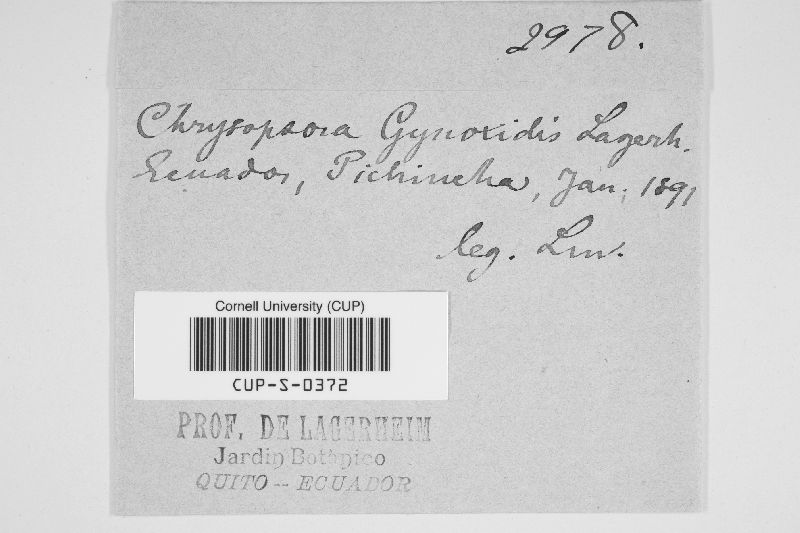 2978.
Chrysopsora Gynoxidis Lagerh.
Ecuador, Pichincha, Jan. 1891
leg. Lm.
Cornell University (CUP)
CUP-S-0372
PROF. DE LAGERHEIM
Jardin Botanico
QUITO -- ECUADOR